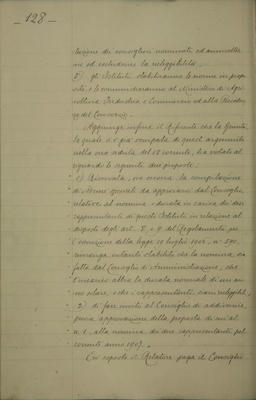 - 128 -
lazione dei consiglieri nominati ed ammettere
ne od escluderne la rieleggibilità.
5) gli Istituti stabiliranno le norme in propo
sito, e le comunicheranno al Ministero di Agri
coltura Industria e Commercio ed alla Presidenza
del Consorzio.
Aggiunge infine il Riferente che la Giunta
la quale s'è già occupata di questi argomenti
nella sua seduta del 18 corrente, ha votato al
riguardo le seguenti due proposte:
" 1) Riservata, ove occorra, la compilazione
" di Norme generali da approvarsi dal Consiglio,
" relative al nomina e durata in carica dei due
" rappresentanti di questo Istituto in relazione al
" disposti degli art. 8 e 9 del Regolamento per
" l'esecuzione della legge 14 luglio 1907, n° 590,
" rimanga intanto stabilito che la nomina sia
" fatta dal Consiglio di Amministrazione, che
" l'incarico abbia la durata normale di un an
" no solare, e che i rappresentanti siano rieleggibili.
" 2) di fare inviti al Consiglio di addivenire,
" previa approvazione della proposta di cui al
" n. 1, alla nomina dei due rappresentanti pel
" corrente anno 1907.
Ciò esposto il Relatore prega il Consiglio